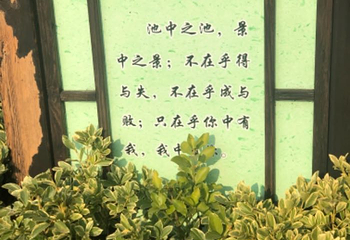 池中之池，景
中之景；不在乎得
与失，不在乎成与
败；只在乎你中有
我，我中